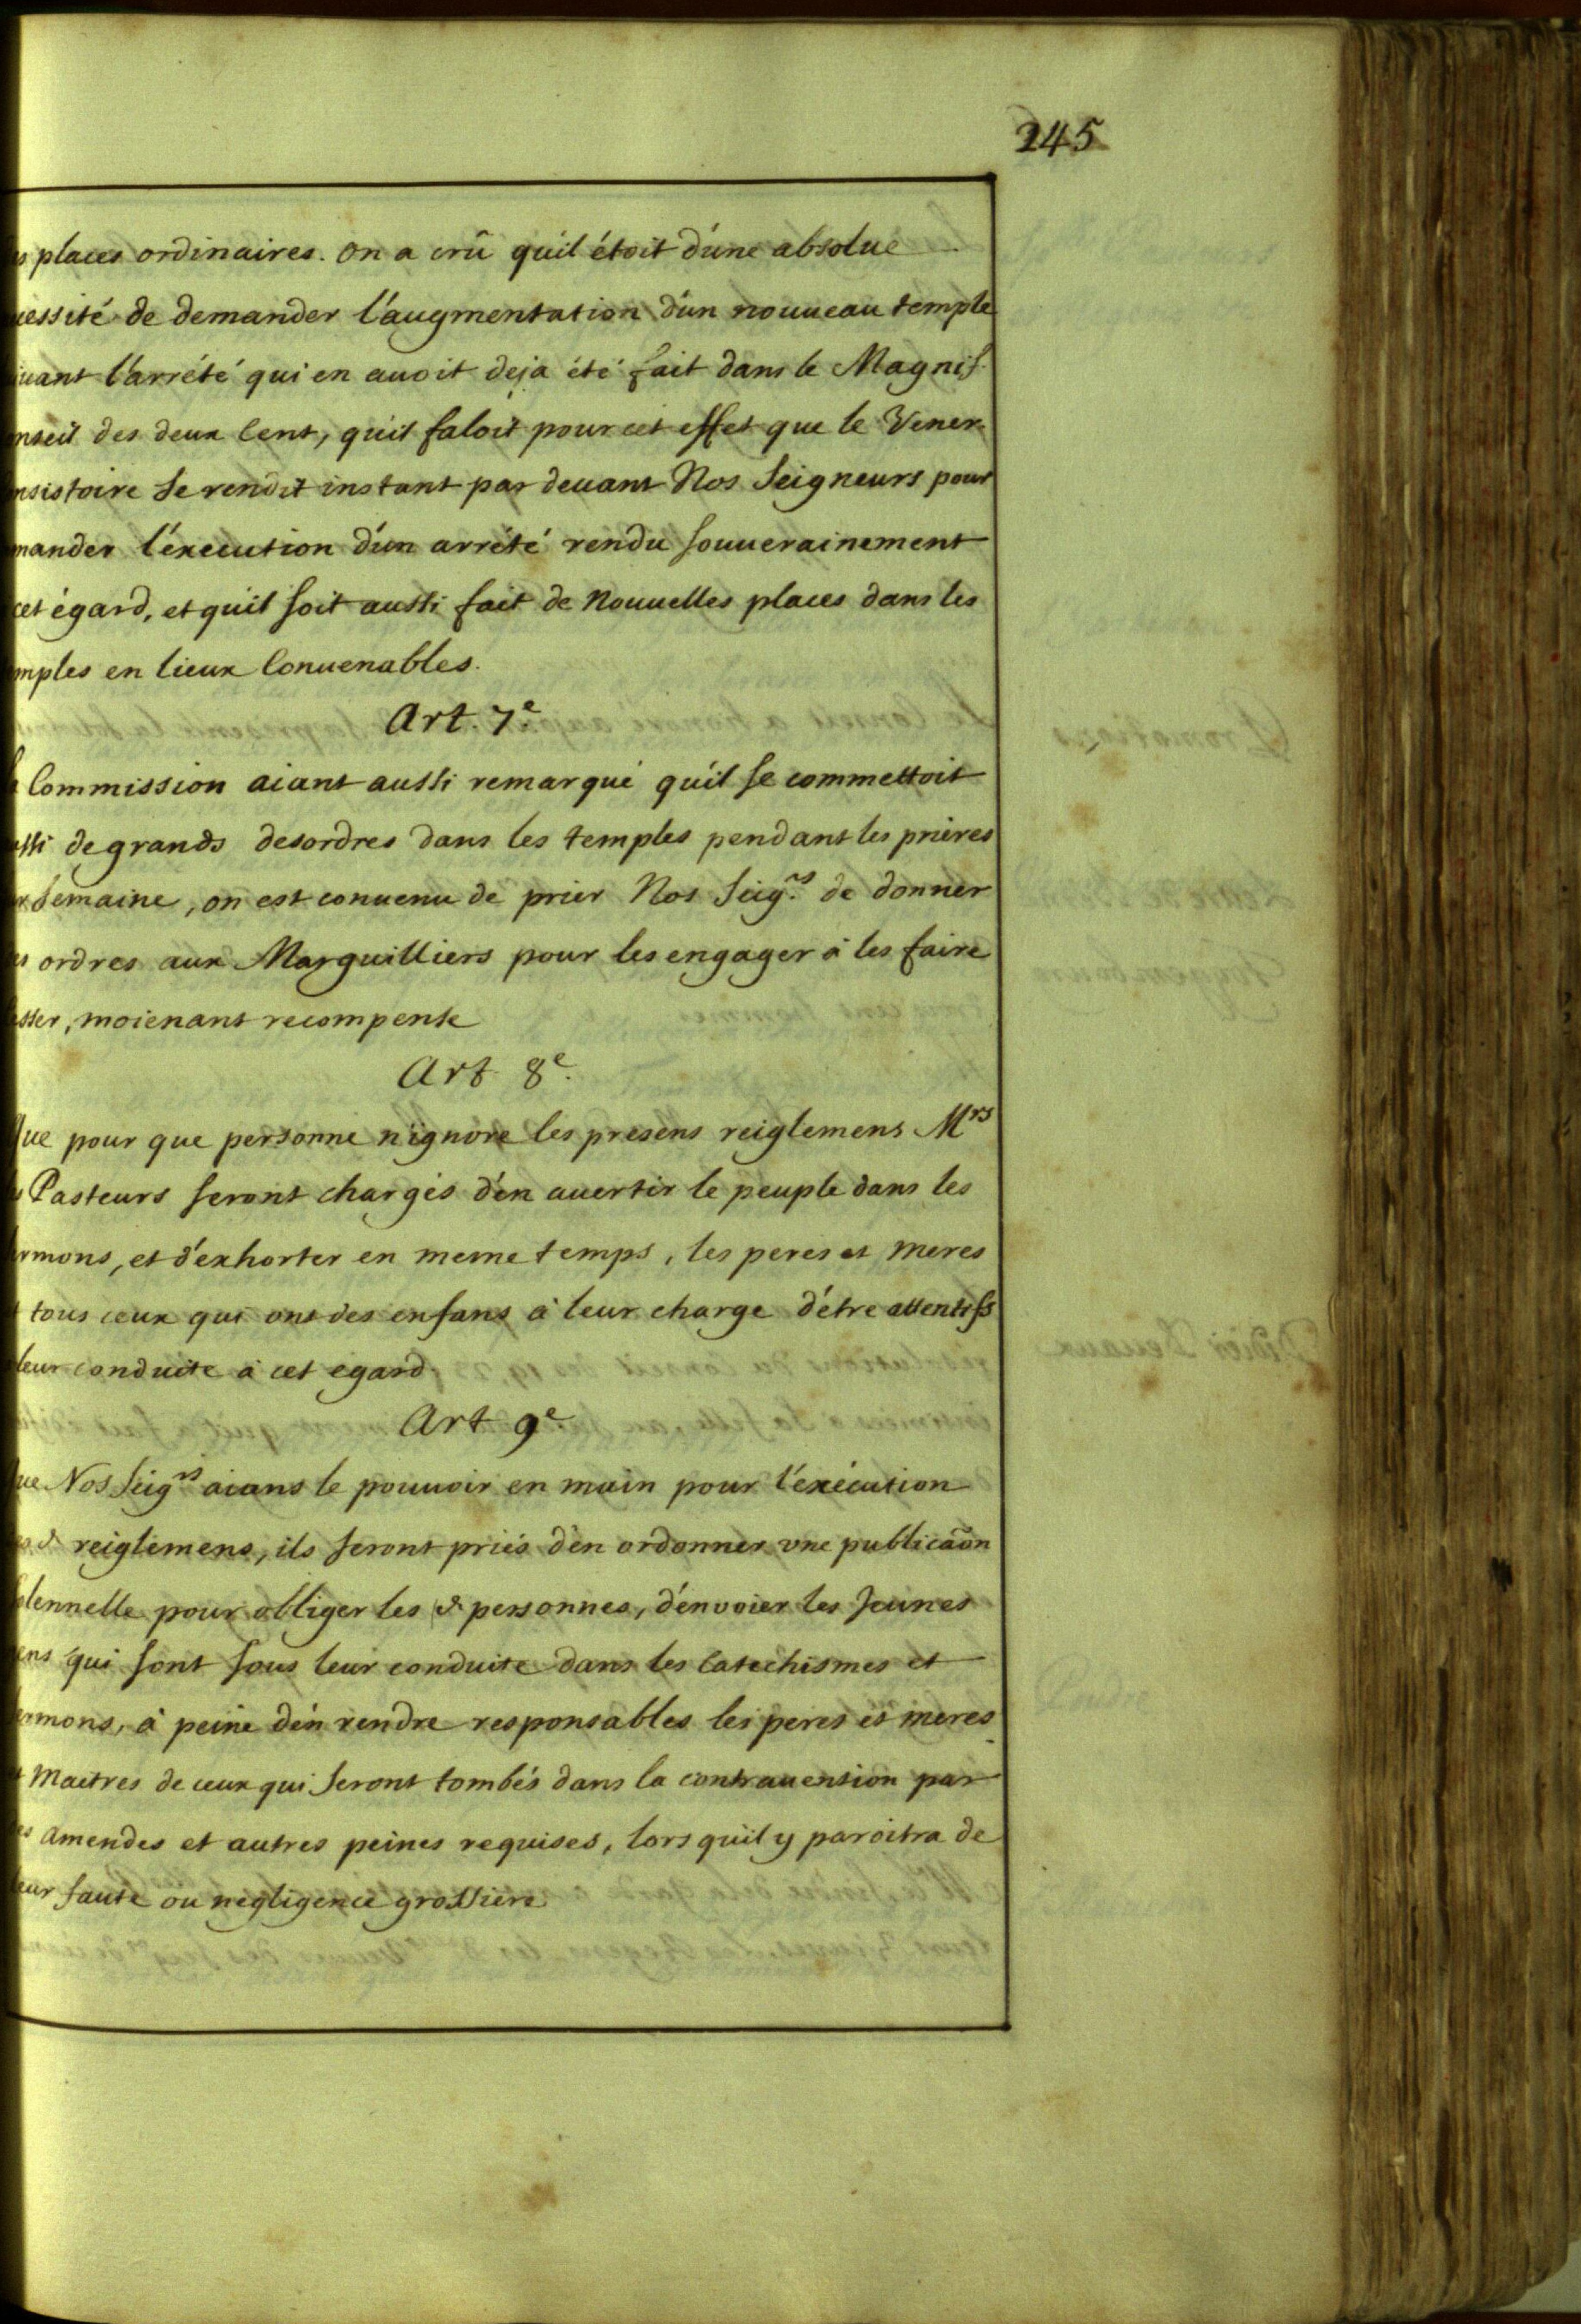 245
places ordinaires. on a crû qu'il étoit d'une absolue
cessité de demander l'augmentation d'un nouueau temple
iuant l'arrété qui en auoit deja été fait dans le Magnif.
onseil des deux Cent, qu'il faloit pour cet effet que le Vener.
nsistoire se rendit instant par deuant Nos Seigneurs pour
mander l'éxecution d'un arrété rendu souuerainement
cet égard, et qu'il soit aussi fait de Nouuelles places dans les
mples en lieux Conuenables.
Art. 7.e
Commission aiant aussi remarqué qu'il se commettoit
ssi de grands desordres dans les temples pendant les prières
Semaine, on est conuenu de prier Nos Seig.rs de donner
ordres aux Marguilliers pour les engager à les faire
sser, moienant recompense
Art 8e.
ue pour que personne n'ignore les presens reiglemens Mrs
Pasteurs seront chargés d'en auertir le peuple dans les
rmons, et d'exhorter en meme temps, les peres et meres
tous ceux qui ont des enfans à leur charge d'étre attentifs
leur conduite à cet egard.
Art 9e
ue Nos Seigrs aians le pouuoir en main pour l'exécution
d. reiglemens, ils seront priés d'en ordonner vne publicaõn
lennelle pour obliger les d. personnes, d'envoier les Jeunes
ens qui sont sous leur conduite dans les Catechismes et
rmons, à peine d'en rendre responsables les peres et meres
Maitres de ceux qui seront tombés dans la contrauention par
amendes et autres peines requises, lors qu'il y paroitra de
eur faute ou negligence grossiere